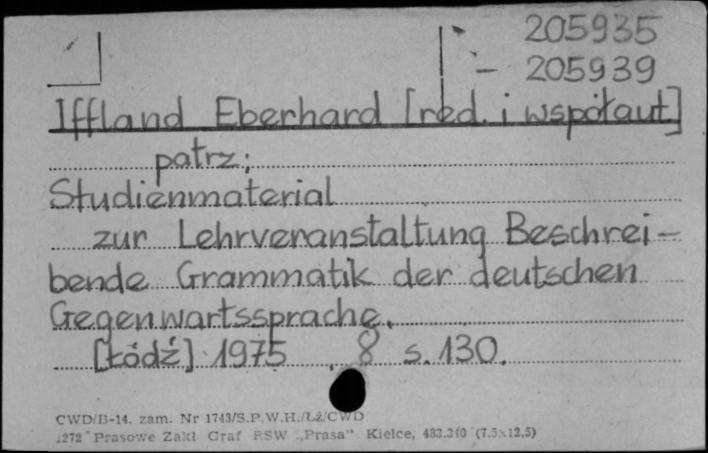 205935
- 205939
Iffland Eberhard [red. i współaut]
patrz:
Studienmaterial
zur Lehrveranstaltung Beschrei-
bende Grammatik der deutschen
Gegenwartssprache.
[Łódź] 1975 . 8 s. 130.
CWD/B-14. zam. Nr 1743/S.P.W.H./Łź/CWD
1272 Prasowe Zakł Graf RSW „Prasa" Kielce, 483.310 (7.5×12,5)